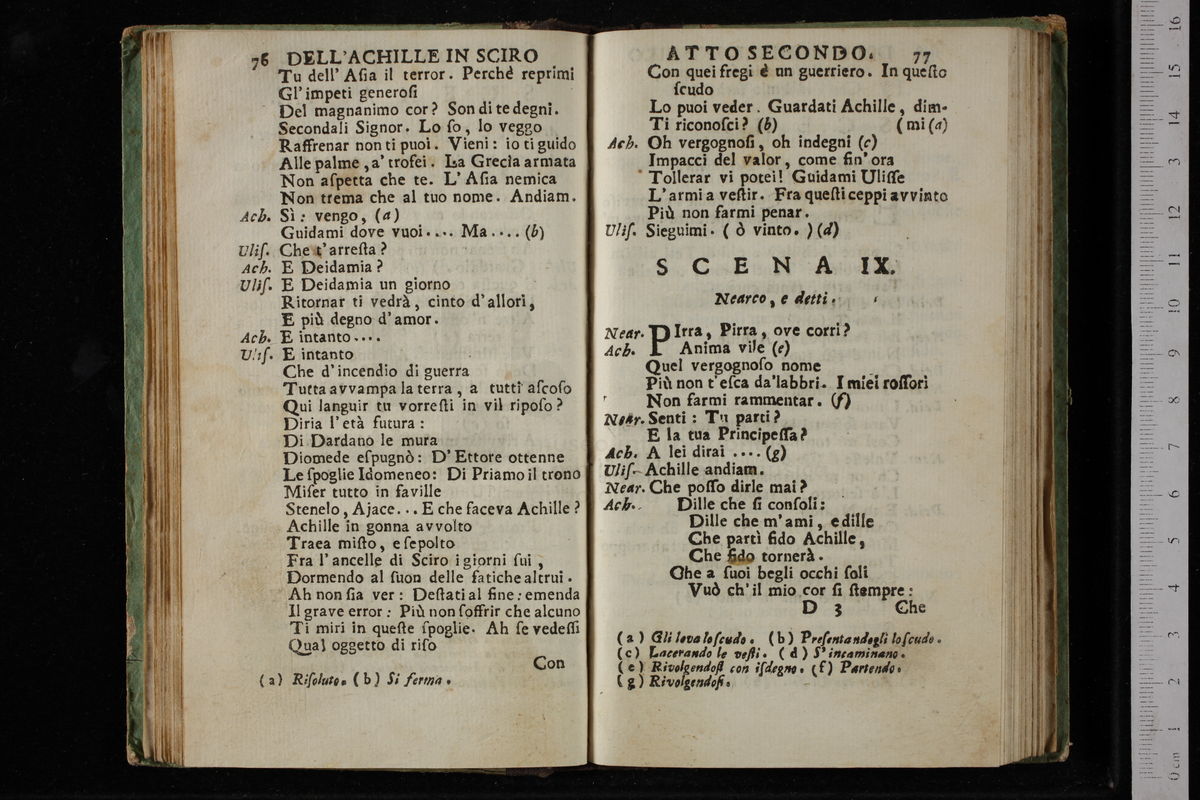 76 DELL'ACHILLE IN SCIRO
Tu dell' Aſia il terror. Perchè reprimi
Gl'impeti generoſi
Del magnanimo cor? Son di te degni.
Secondali Signor. Lo ſo, lo veggo
Raffrenar non ti puoi. Vieni: io ti guido
Alle palme, a' trofei. La Grecia armata
Non aſpetta che te. L' Aſia nemica
Non trema che al tuo nome. Andiam.
Ach. Sì: vengo, (a)
Guidami dove vuoi.... Ma.... (b)
Uliſ. Che t'arreſta?
Ach. E Deidamia?
Uliſ. E Deidamia un giorno
Ritornar ti vedrà, cinto d'allori,
E più degno d'amor.
Ach. E intanto....
Uliſ. E intanto
Che d'incendio di guerra
Tutta avvampa la terra, a tutti aſcoſo
Qui languir tu vorreſti in vil ripoſo?
Diria l'età futura:
Di Dardano le mura
Diomede eſpugnò: D'Ettore ottenne
Le ſpoglie Idomeneo: Di Priamo il trono
Miſer tutto in faville
Stenelo, Ajace... E che faceva Achille?
Achille in gonna avvolto
Traea miſto, e ſepolto
Fra l'ancelle di Sciro i giorni ſui,
Dormendo al ſuon delle fatiche altrui.
Ah non ſia ver: Deſtati al fine: emenda
Il grave error: Più non ſoffrir che alcuno
Ti miri in queſte ſpoglie. Ah ſe vedeſſi
Qual oggetto di riſo
Con
(a) Riſoluto. (b) Si ferma.
ATTO SECONDO. 77
Con quei fregi è un guerriero. In queſto
ſcudo
Lo puoi veder. Guardati Achille, dim-
Ti riconoſci? (b) (mi (a)
Ach. Oh vergognoſi, oh indegni (c)
Impacci del valor, come fin' ora
Tollerar vi potei! Guidami Uliſſe
L'armi a veſtir. Fra queſti ceppi avvinto
Più non farmi penar.
Uliſ. Sieguimi. (ò vinto.) (d)
SCENA IX.
Nearco, e detti.
Near. PIrra, Pirra, ove corri?
Ach. Anima vile (e)
Quel vergognoſo nome
Più non t'eſca da'labbri. I miei roſſori
Non farmi rammentar. (f)
Near. Senti: Tu parti?
E la tua Principeſſa?
Ach. A lei dirai .... (g)
Uliſ. Achille andiam.
Near. Che poſſo dirle mai?
Ach. Dille che ſi conſoli:
Dille che m'ami, e dille
Che partì fido Achille,
Che fido tornerà.
Che a ſuoi begli occhi ſoli
Vuò ch'il mio cor ſi ſtempre:
D 3 Che
(a) Gli leva lo ſcudo. (b) Preſentandogli lo ſcudo.
(c) Lacerando le veſti. (d) S'incaminano.
(e) Rivolgendoſi con iſdegno. (f) Partendo.
(g) Rivolgendoſi.
0 cm 1 2 3 4 5 6 7 8 9 10 11 12 13 14 15 16